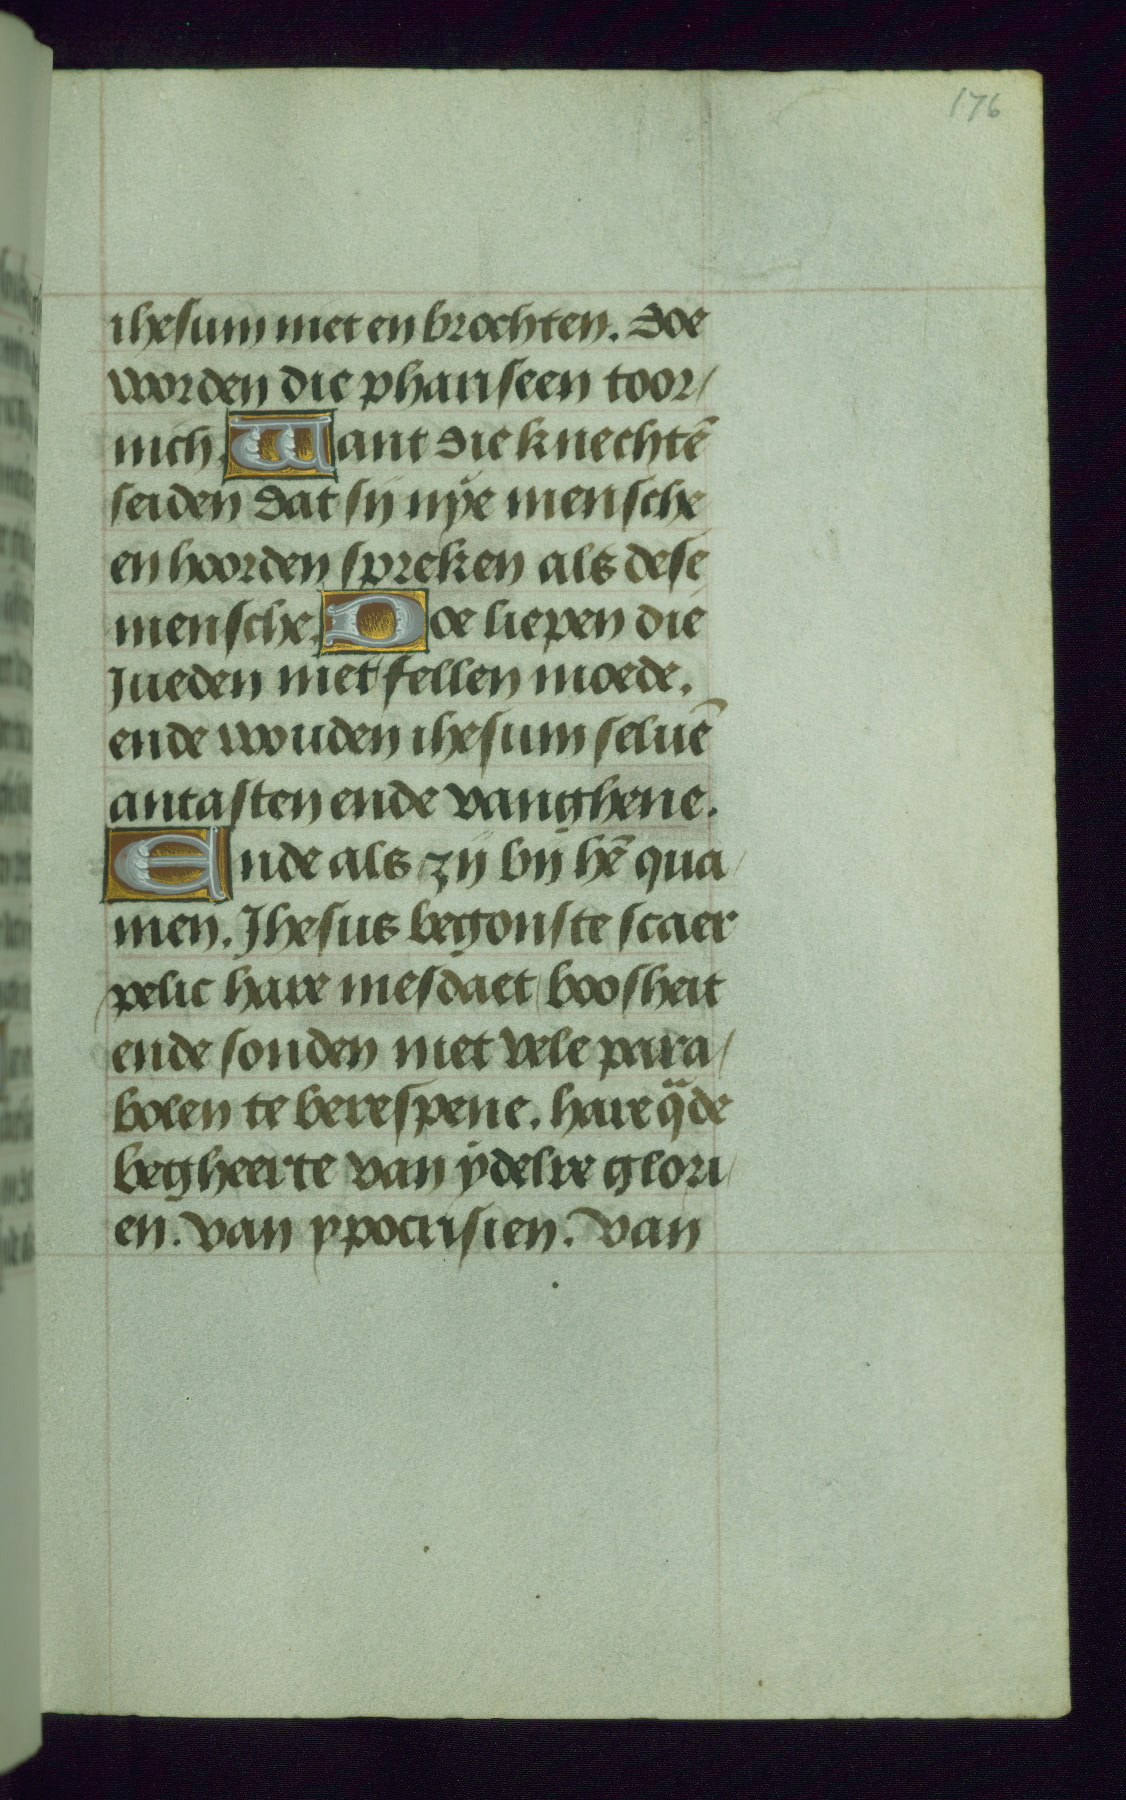 176
ihesum niet en brochten. Doe
worden die phariseen toor/
nich. Want die knechtē
seiden dat sij nÿe mensche
en hoorden spreken als dese
mensche. Doe liepen die
Jueden met fellen moede.
ende wouden ihesum seluē
antasten ende vanghene.
Ende als zij bij hē qua/
men. Jhesus begonste scaer
pelic hare mesdaet boosheit
ende sonden met vele para/
bolen te berespene. hare q̃de
begheerte van ÿdelre glori/
en. van ypocrisien. van